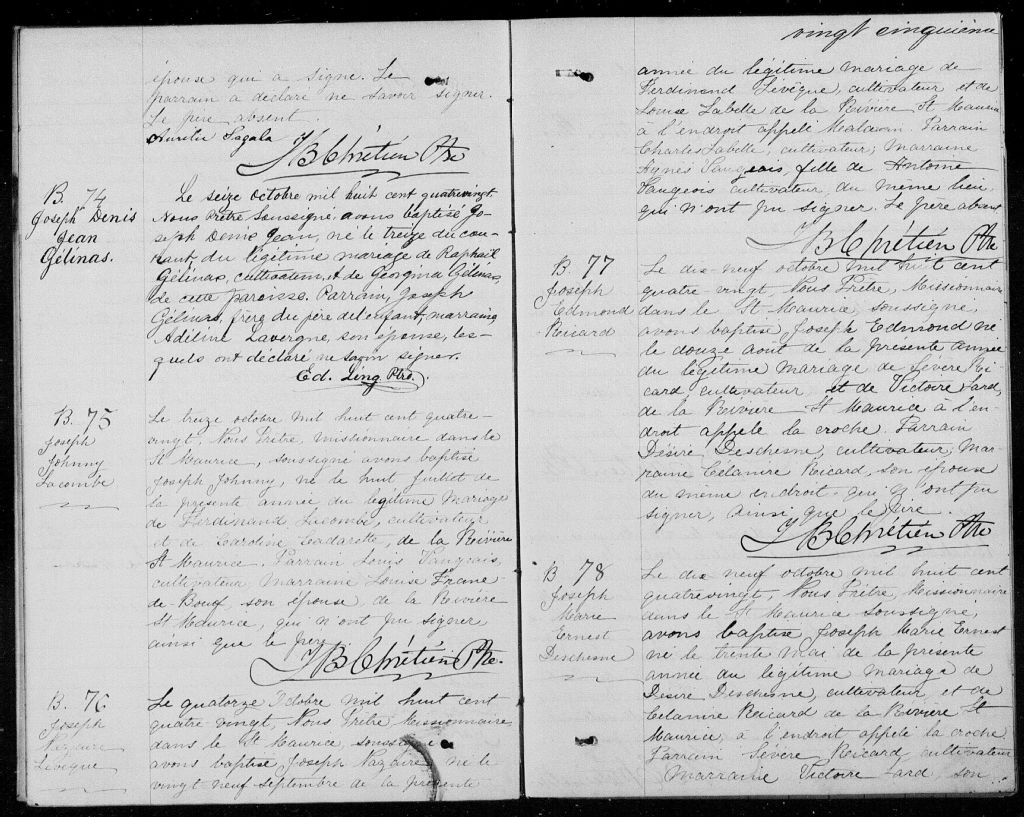 épouse qui a signé. Le
parrain a déclaré ne savoir signer.
Le père absent.
Aurélie Lagala
J B Chrétien Ptre
B. 74
Joseph Denis
Jean
Gélinas.
Le seize octobre mil huit cent quatrevingt
Nous Prêtre soussigné, avons baptisé Jo-
seph Denis Jean, né le treize du cou-
rant, du légitime mariage de Raphaël
Gélinas, cultivateur, et de Georgina Gélinas,
de cette paroisse. Parrain, Joseph
Gélinas, frère du père de l'enfant, marraine
Adéline Lavergne, son épouse, les-
quels ont déclaré ne savoir signer.
Ed. Ling Ptre.
B. 75
Joseph
Johnny
Lacombe
Le treize octobre mil huit cent quatre-
vingt, Nous Prêtre, missionnaire dans le
St Maurice, soussigné avons baptisé
Joseph Johnny, né le huit juillet de
la présente année du légitime mariage
de Ferdinand Lacombe, cultivateur
et de Caroline Cadarette, de la Rivière
St Maurice. Parrain Louis Vaugeois,
cultivateur Marraine Louise Franc-
de-Bouf, son épouse, de la Rivière
St Maurice, qui n'ont pu signer
ainsi que le père
J B Chrétien Ptre.
B. 76
Joseph
Nazaire
Lévêque
Le quatorze Octobre mil huit cent
quatre vingt, Nous Prêtre Missionnaire,
dans le St Maurice, soussigné
avons baptisé Joseph Nazaire né le
vingt neuf septembre de la présente
vingt cinquième
année du légitime mariage de
Ferdinand Lévêque, cultivateur et de
Louise Labelle de la Rivière St Maurice
à l'endroit appelé Parrain
Charles Labelle, cultivateur; Marraine
Agnès Vaugeois, fille de Antoine
Vaugeois cultivateur, du même lieu,
qui n'ont pu signer. Le père absent
J B Chrétien Ptre
B. 77
Joseph
Edmond
Ricard
Le dix-neuf octobre mil huit cent
quatre-vingt Nous Prêtre, Missionnaire
dans le St Maurice, soussigné,
avons baptisé Joseph Edmond né
le douze aout de la présente année
du légitime mariage de Sévère Ri-
card cultivateur et de Victoire Lard,
de la Rivière St Maurice à l'en-
droit appelé la croche. Parrain
Désiré Deschesne, cultivateur, Mar-
raine Célanire Ricard, son épouse
du même endroit qui n'ont pu
signer, ainsi que le père.
J B Chrétien Ptre
B 78
Joseph
Marie
Ernest
Deschesne
Le dix neuf octobre mil huit cent
quatrevingt, Nous Prêtre, Missionnaire
dans le St Maurice soussigné,
avons baptisé Joseph Marie Ernest
né le trente mai de la présente
année du légitime mariage de
Désiré Deschesne, cultivateur, et de
Célanire Ricard de la Rivière St
Maurice, à l'endroit appelé la croche
Parrain Sévère Ricard, cultivateur
Marraine Victoire Lard, son